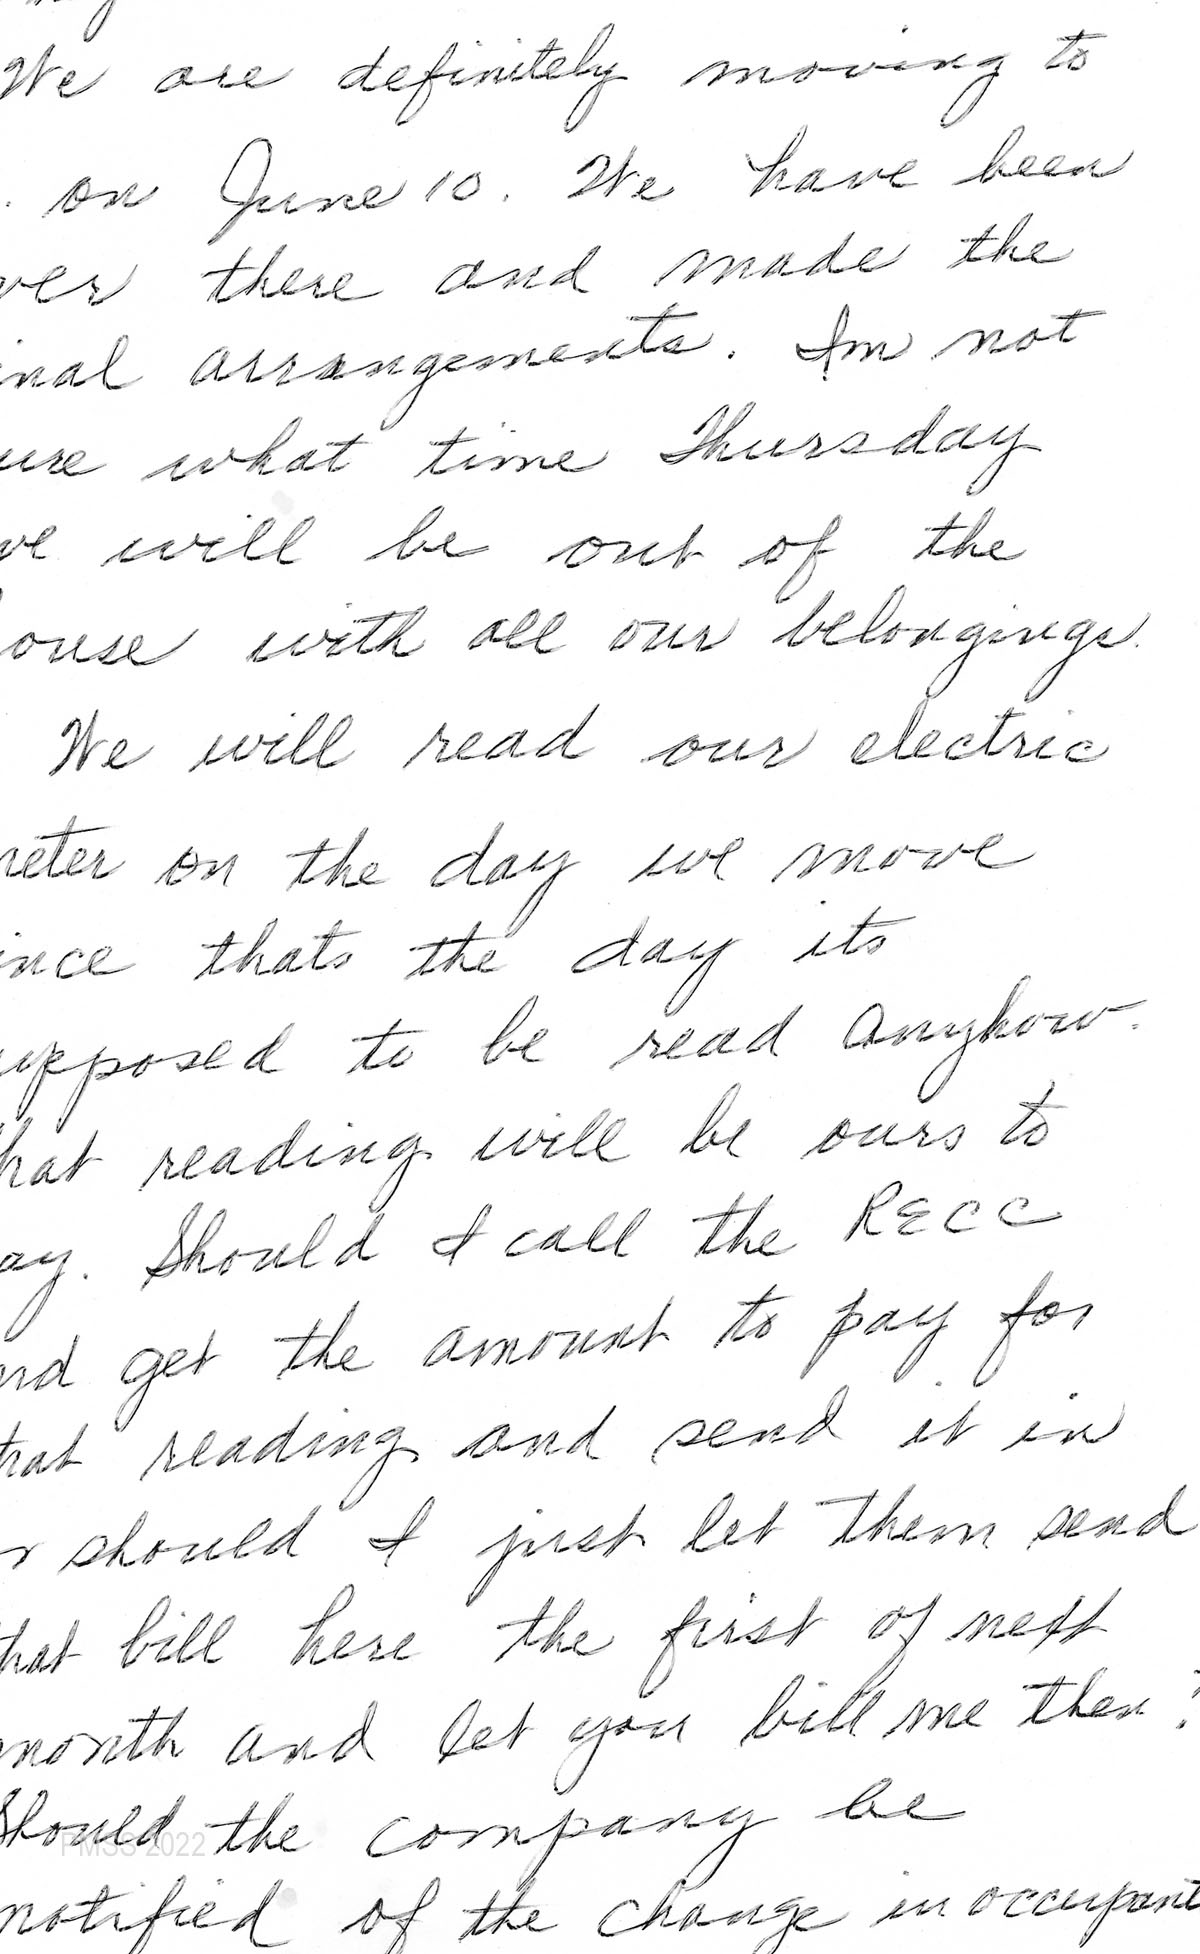 We are definitely moving to
. on June 10. We have been
ver there and made the
inal arrangements. Im not
ure what time Thursday
we will be out of the
ouse with all our belongings.
We will read our electric
meter on the day we move
ince thats the day its
upposed to be read anyhow.
hat reading will be ours to
ay. Should I call the RECC
nd get the amount to pay for
that reading and send it in
r should I just let them send
that bill here the first of next
month and let you bill me then?
Should the company be
PMSS 2022
notified of the change in occupant